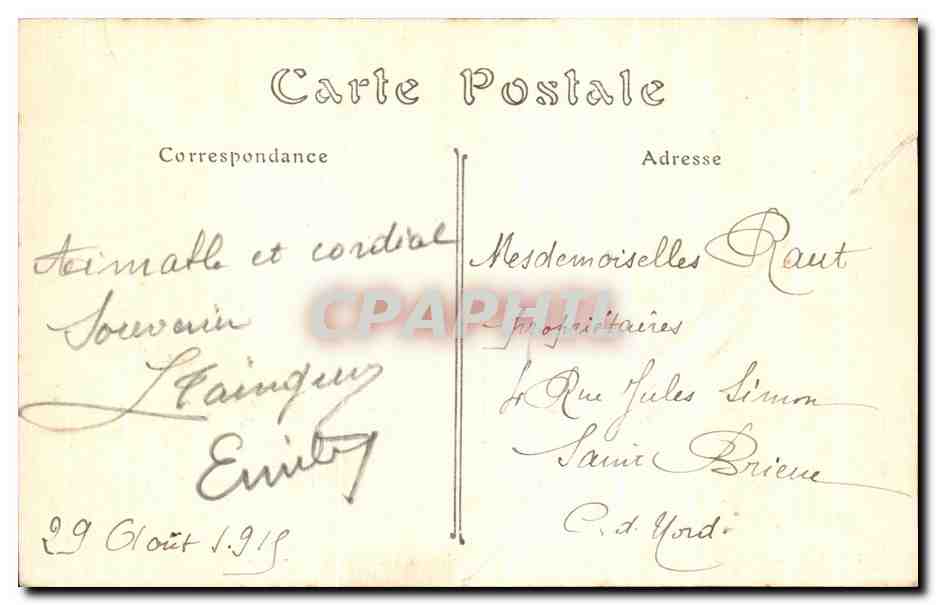 Carte Postale
Correspondance
Adresse
Aimable et cordial
Souvenir
Emile
29 Août 1.915
Mesdemoiselles Raut
propriétaires
4 Rue Jules Simon
Saint Brieuc
C. d. Nord
CPAPHIL